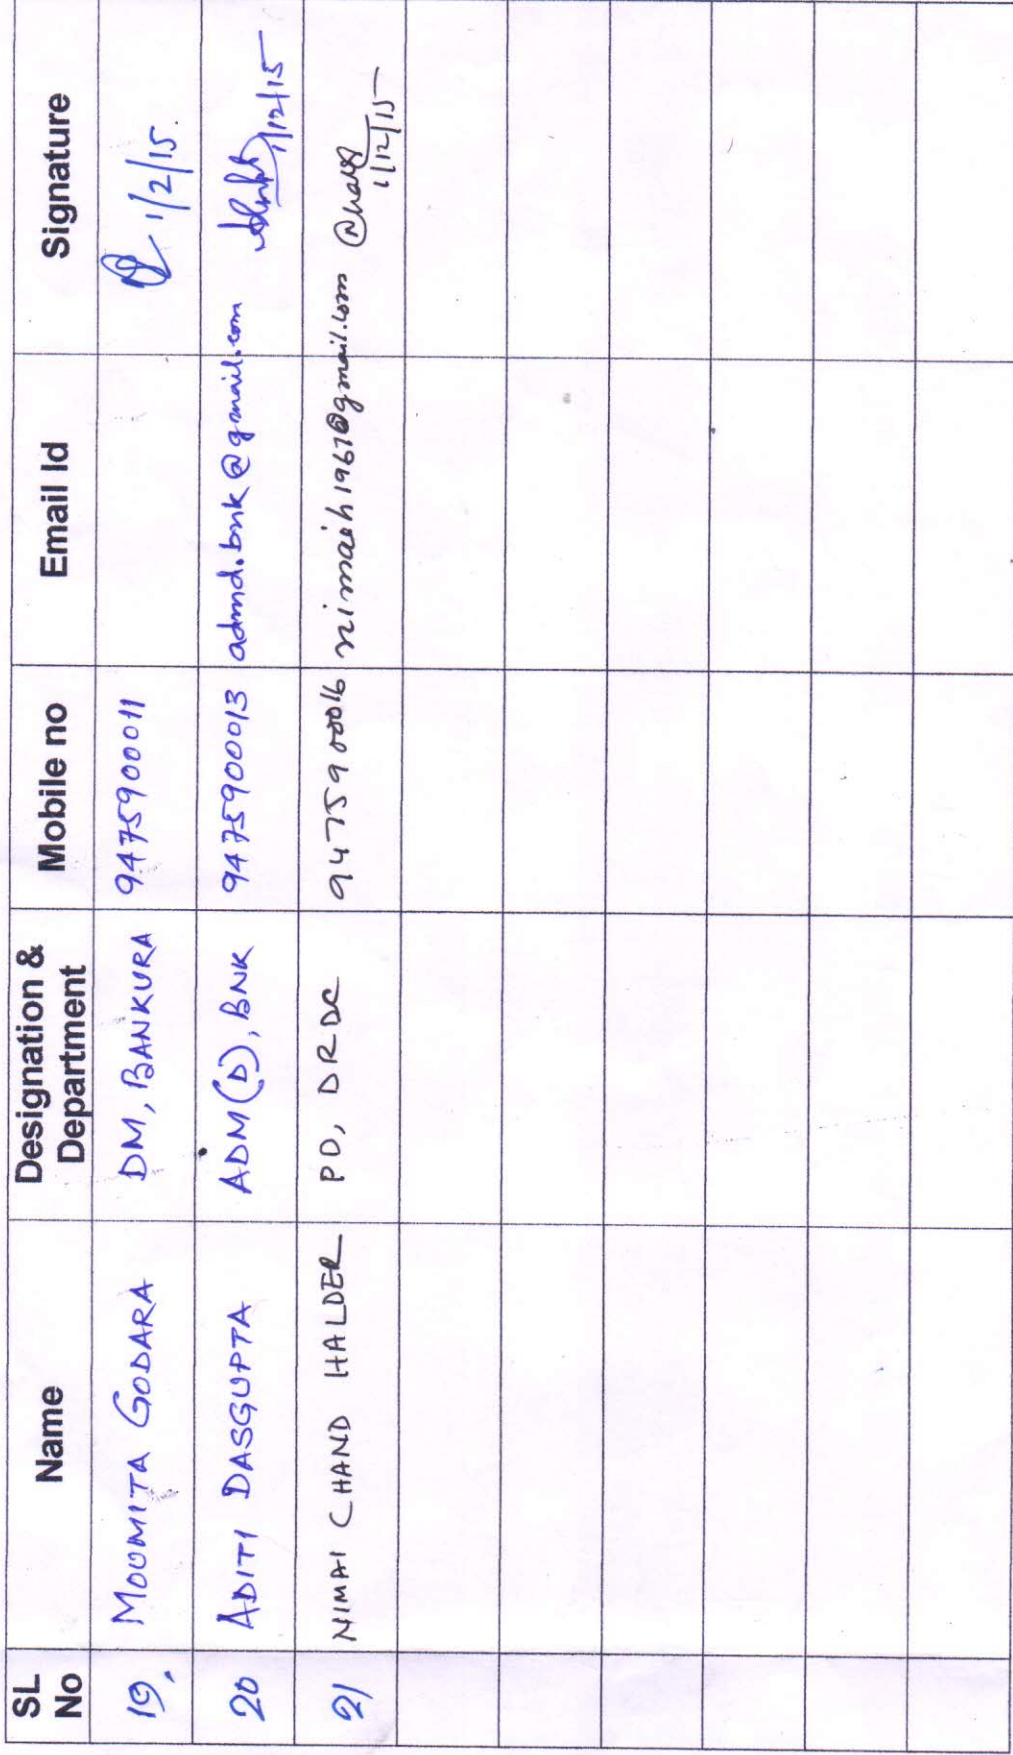 SL No Name Designation & Department Mobile no Email Id Signature
19. MOUMITA GODARA DM, BANKURA 9475900011 1/2/15.
20 ADITI DASGUPTA ADM(D), BNK 9475900013 admd.bnk@gmail.com 1/12/15
21 NIMAI CHAND HALDER PD, DRDC 9475900016 nimaih1967@gmail.com 1/12/15